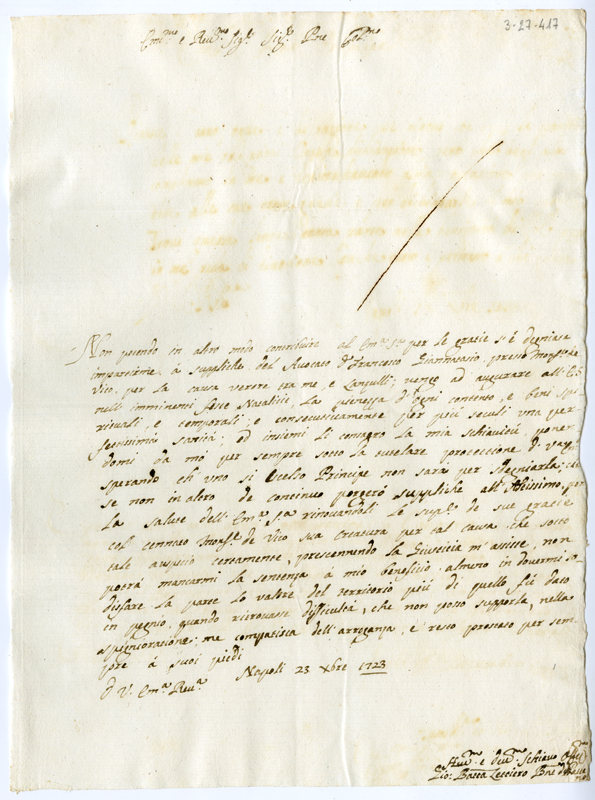 3-27-417
Em.mo e Rev.mo Sig.r Sig.r Pne Col.mo
Non potendo in altro modo contribuire al Em.a S.a per le gratie s'è degniata
impartirme à suppliche del Avocato D. Francesco Giannatasio, presso Mons.r de
Vico, per la causa verte tra me, e Zanpulli; vengo ad augurare all' E.S.
nell' imminenti feste Natalitie la pienezza d'ogni contento, e beni spi-
rituali, e temporali, e consecutivamente per più seculi una per-
fettissima sanità; ed insiemi li consagro la mia schiavitù, ponen-
domi da mò per sempre sotto la tutelare protectione di
sperando ch' uno si Ecelso Principe non sarà per sdegniarla; che
se non in altro de continuo porgerò suppliche all' Altissimo, per
la salute dell' Em.a S.a rinovandoli le sup.e de sue gratie
col' cennato Mons.r de Vico sua Creatura per tal causa, che sotto
tale auspicio certamente, presermendo la Giustitia m'assiste, non
potrà mancarmi la sentenza à mio beneficio, almeno in dovermi so-
disfare la parte lo valore del territorio più di quello fù dato
in pegnio, quando ritrovasse difficultà, che non posso supporla, nella
aspignioratione: me compatisca dell' arroganza, e resto prostato per sem-
pre à suoi piedi
D V. Em.a Rev.a Napoli 23 Xbre 1723
Hum.mo e dev.mo Schiavo
Gio: Batta Bne